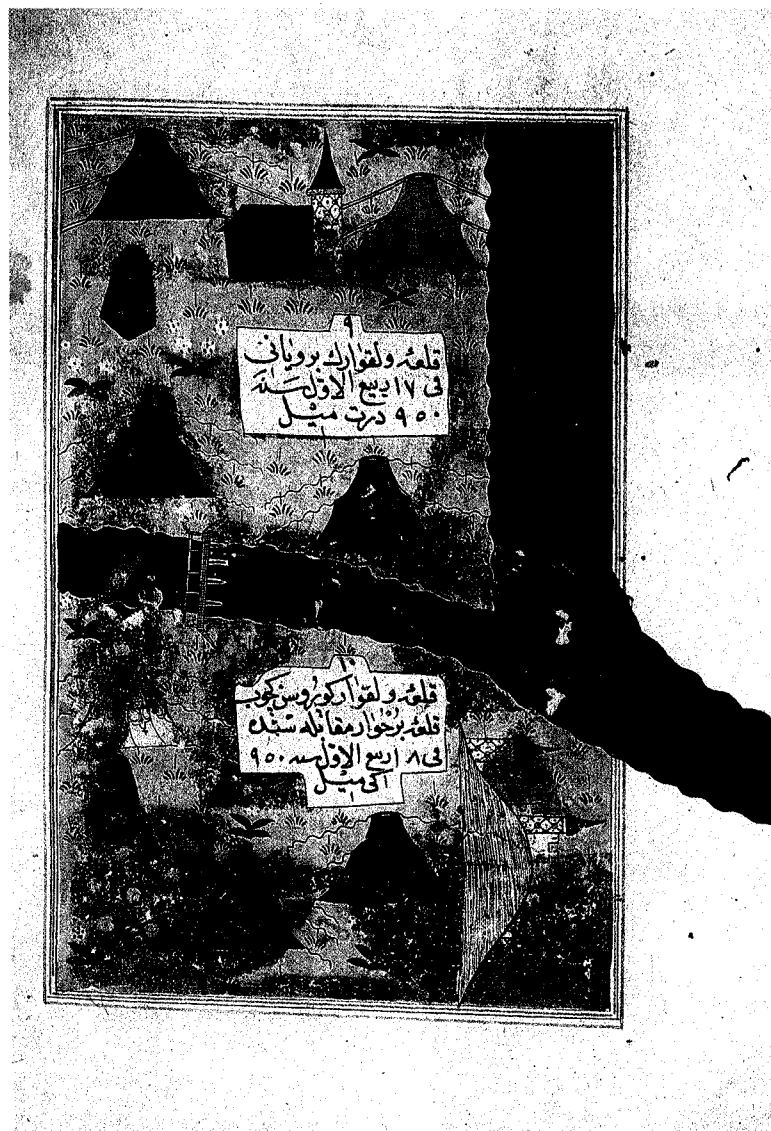 ٩
قلعهٔ ولقوارك بروياني
في ١٧ ربيع الاول سنة
٩٥٠ درت ميل
١٠
قلعهٔ ولقوار كوبروسن كجوب
قلعهٔ برخوار مقابله سنده
في ١٨ ربيع الاول سنه ٩٥٠
اكى ميل